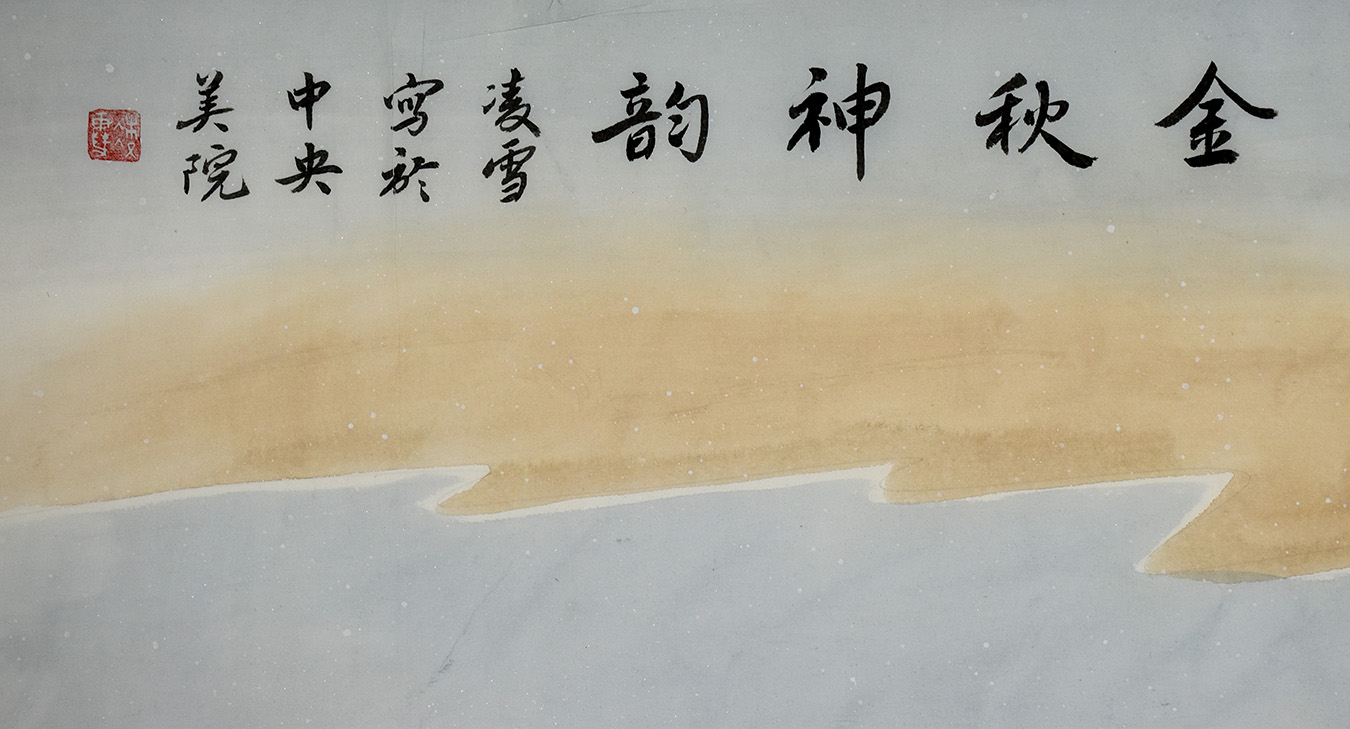 金秋神韵
凌雪
寫於
中央
美院